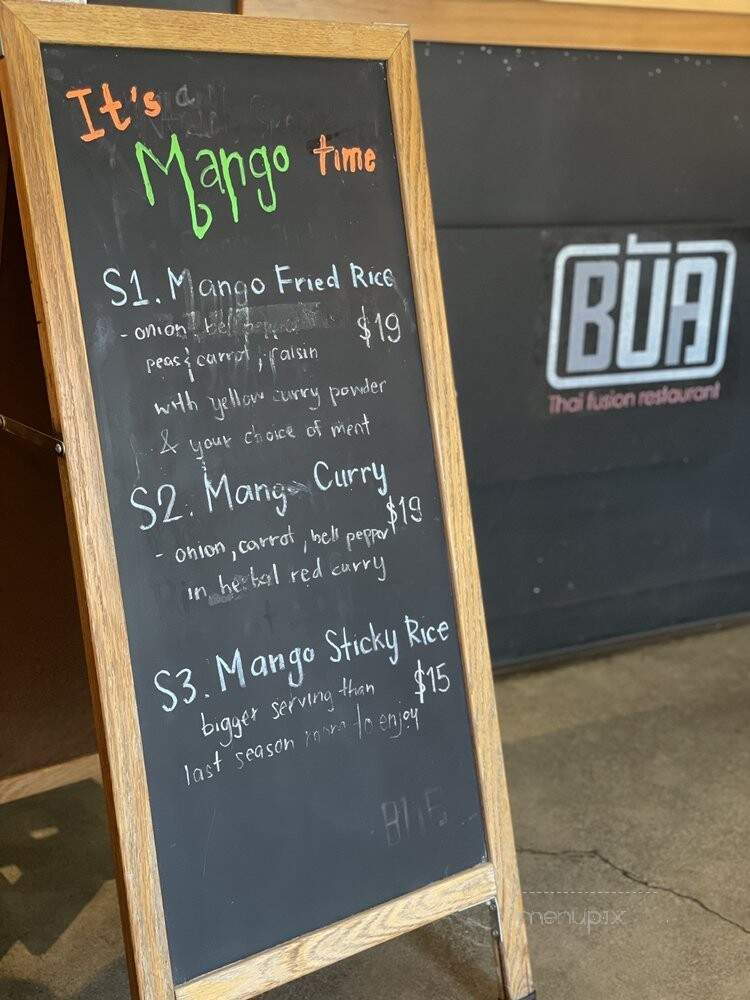 It's
Mango time
S1. Mango Fried Rice
- onion, bell pepper $19
peas & carrot, raisin
with yellow curry powder
& your choice of meat
S2. Mango Curry
$19
- onion, carrot, bell pepper
in herbal red curry
S3. Mango Sticky Rice
$15
bigger serving than
last season more to enjoy
BUA
Thai fusion restaurant
menupix